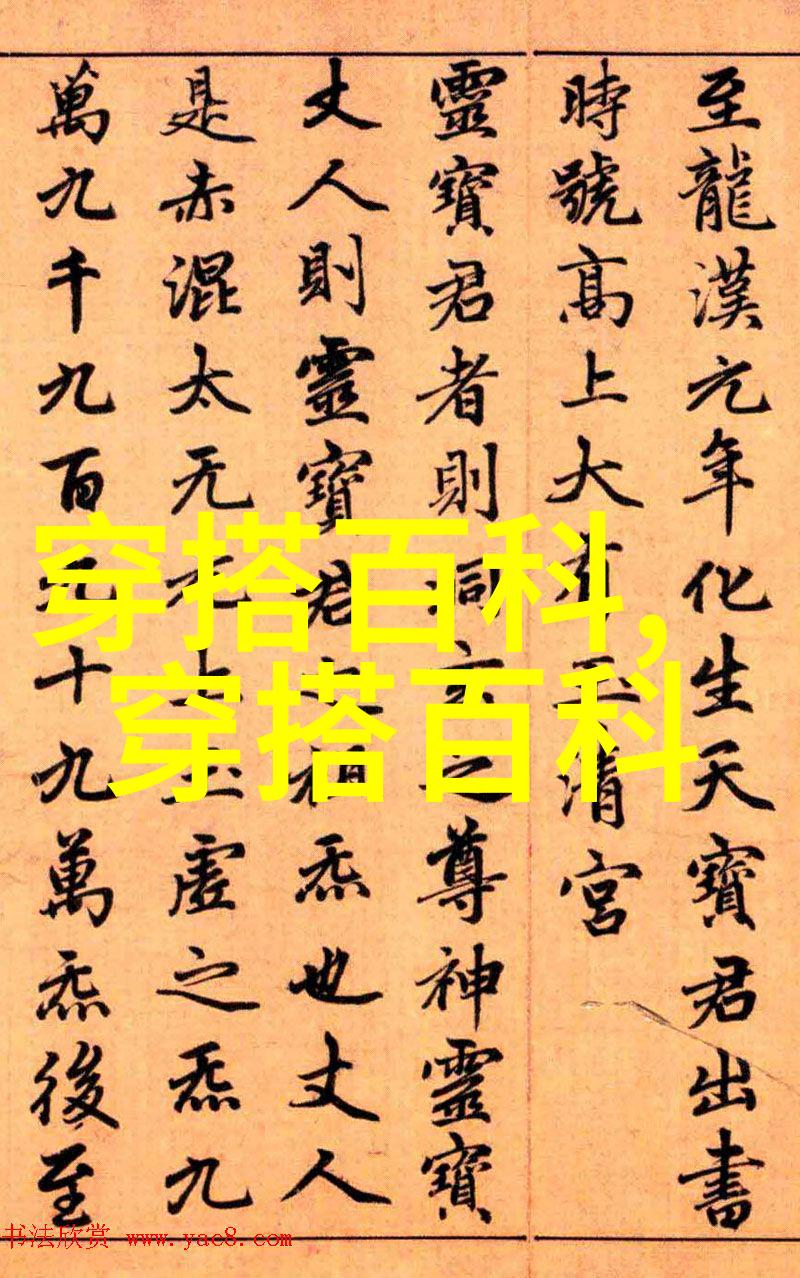 至龍漢元年化生天寶君出書
時號高上大有玉清宮
靈寶君者則洞玄之尊神靈寶
丈人則靈寶君之祖炁也丈人
是赤混太无元上玉虛之炁九
萬九千九百九十九萬炁後至
穿搭百科,
穿搭百科
书法欣赏 www.yac8.com